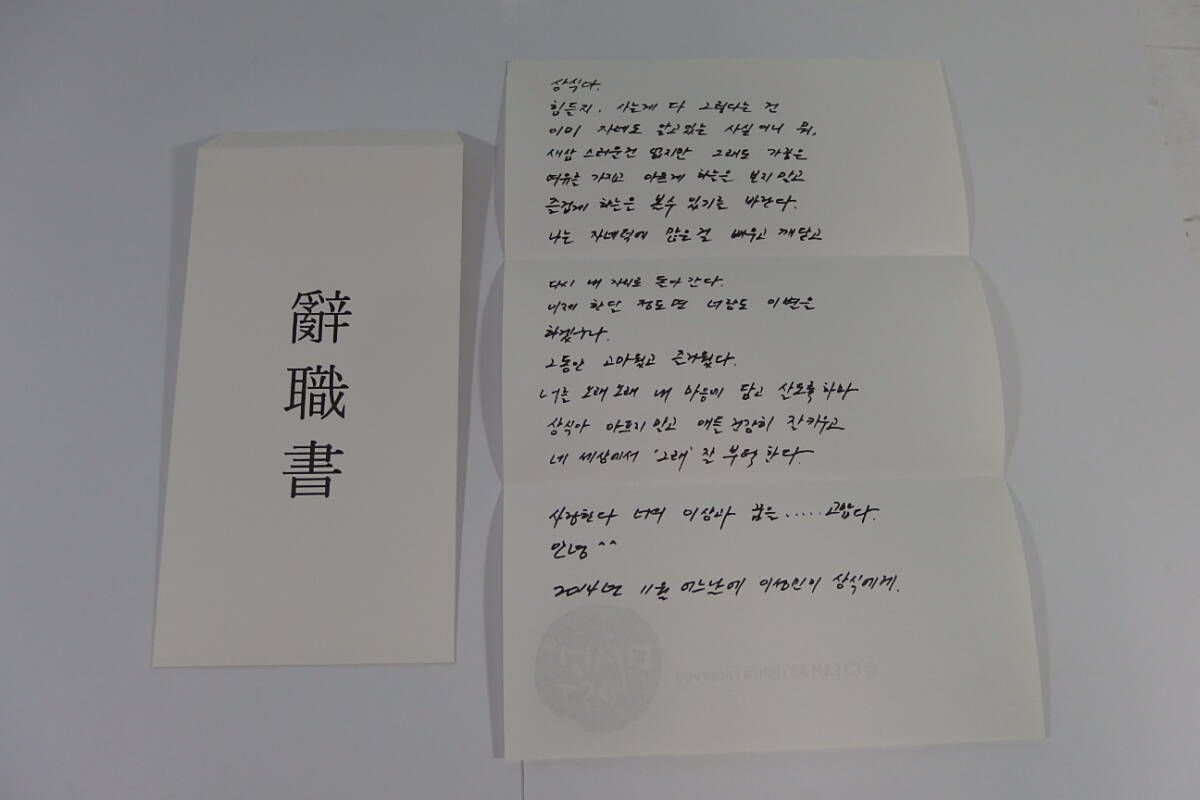 辭
職
書
상식아.
힘든지. 사는게 다 그렇다는 건
이미 자네도 알고있는 사실이니 뭐,
새삼스러운건 없지만 그래도 가끔은
여유를 가지고 아프게 하늘은 보지 않고
즐겁게 하늘은 볼수 있기를 바란다.
나는 자네덕에 많은걸 배우고 깨닫고
다시 내 자리로 돌아간다.
이제 한달 정도면 너랑도 이별은
하겠구나.
그동안 고마웠고 즐거웠다.
너를 오래오래 내 마음에 담고 살도록 하마
상식아 아프지 않고 애들 건강히 잘키우고
네 세상에서 '그래' 잘 부탁한다.
사랑한다 너의 이상과 꿈을.....고맙다.
안녕^^
2014년 11월 어느날에 이성민이 상식에게.
© CJ E&M All rights reserved
미생
OST